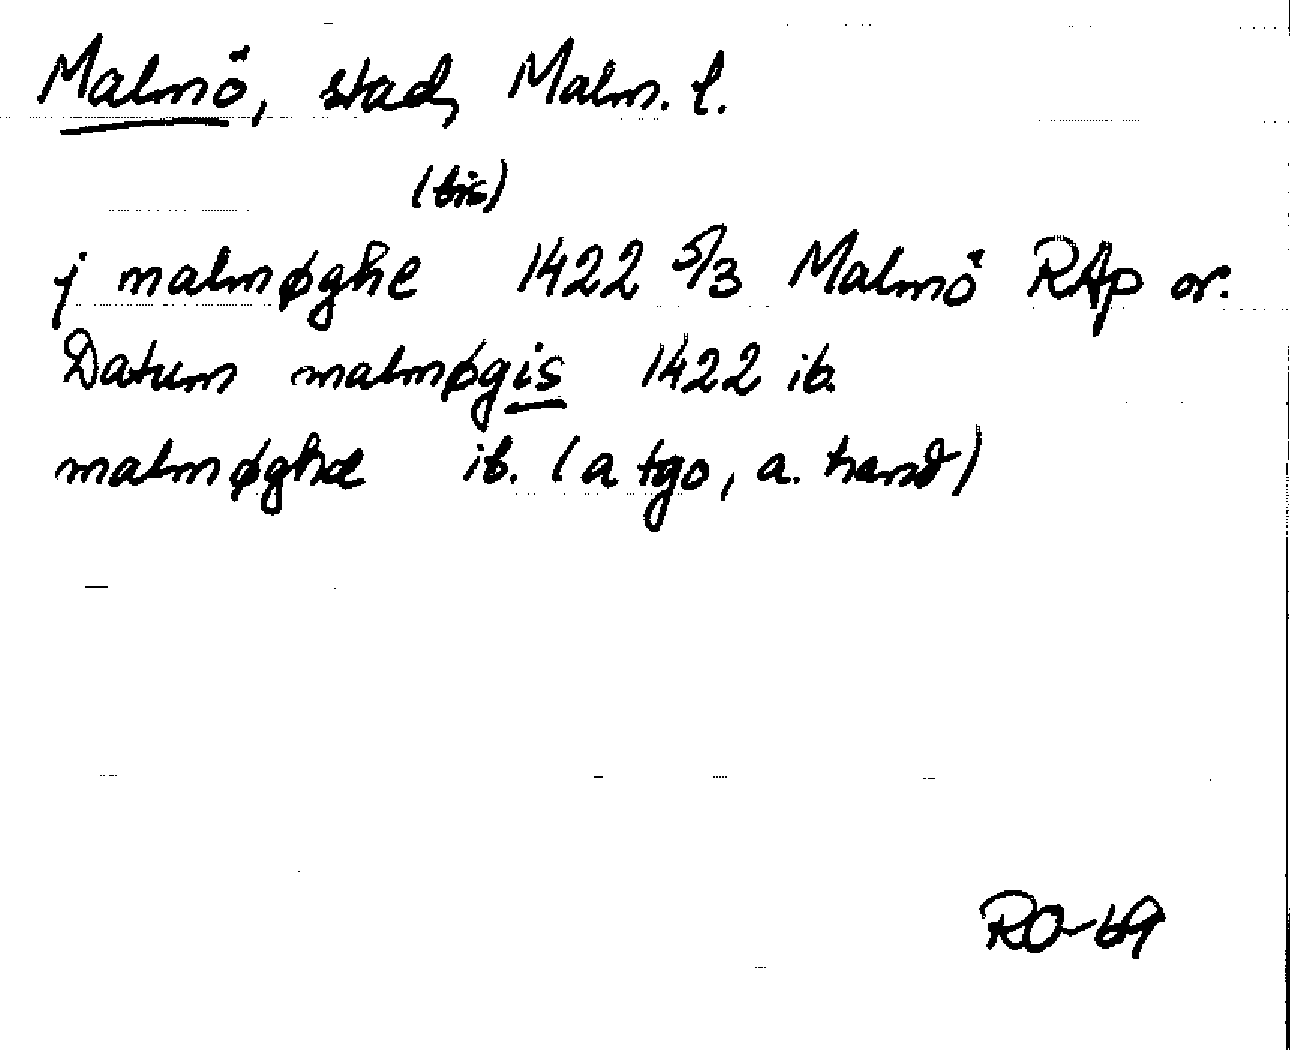 Malmö, stad, Malm. l.
(bis)
j malmøghe 1422 5/3 Malmö RAp or.
Datum malmøgis 1422 ib.
malmøghæ ib. (a tgo, a. hand)
RO-69